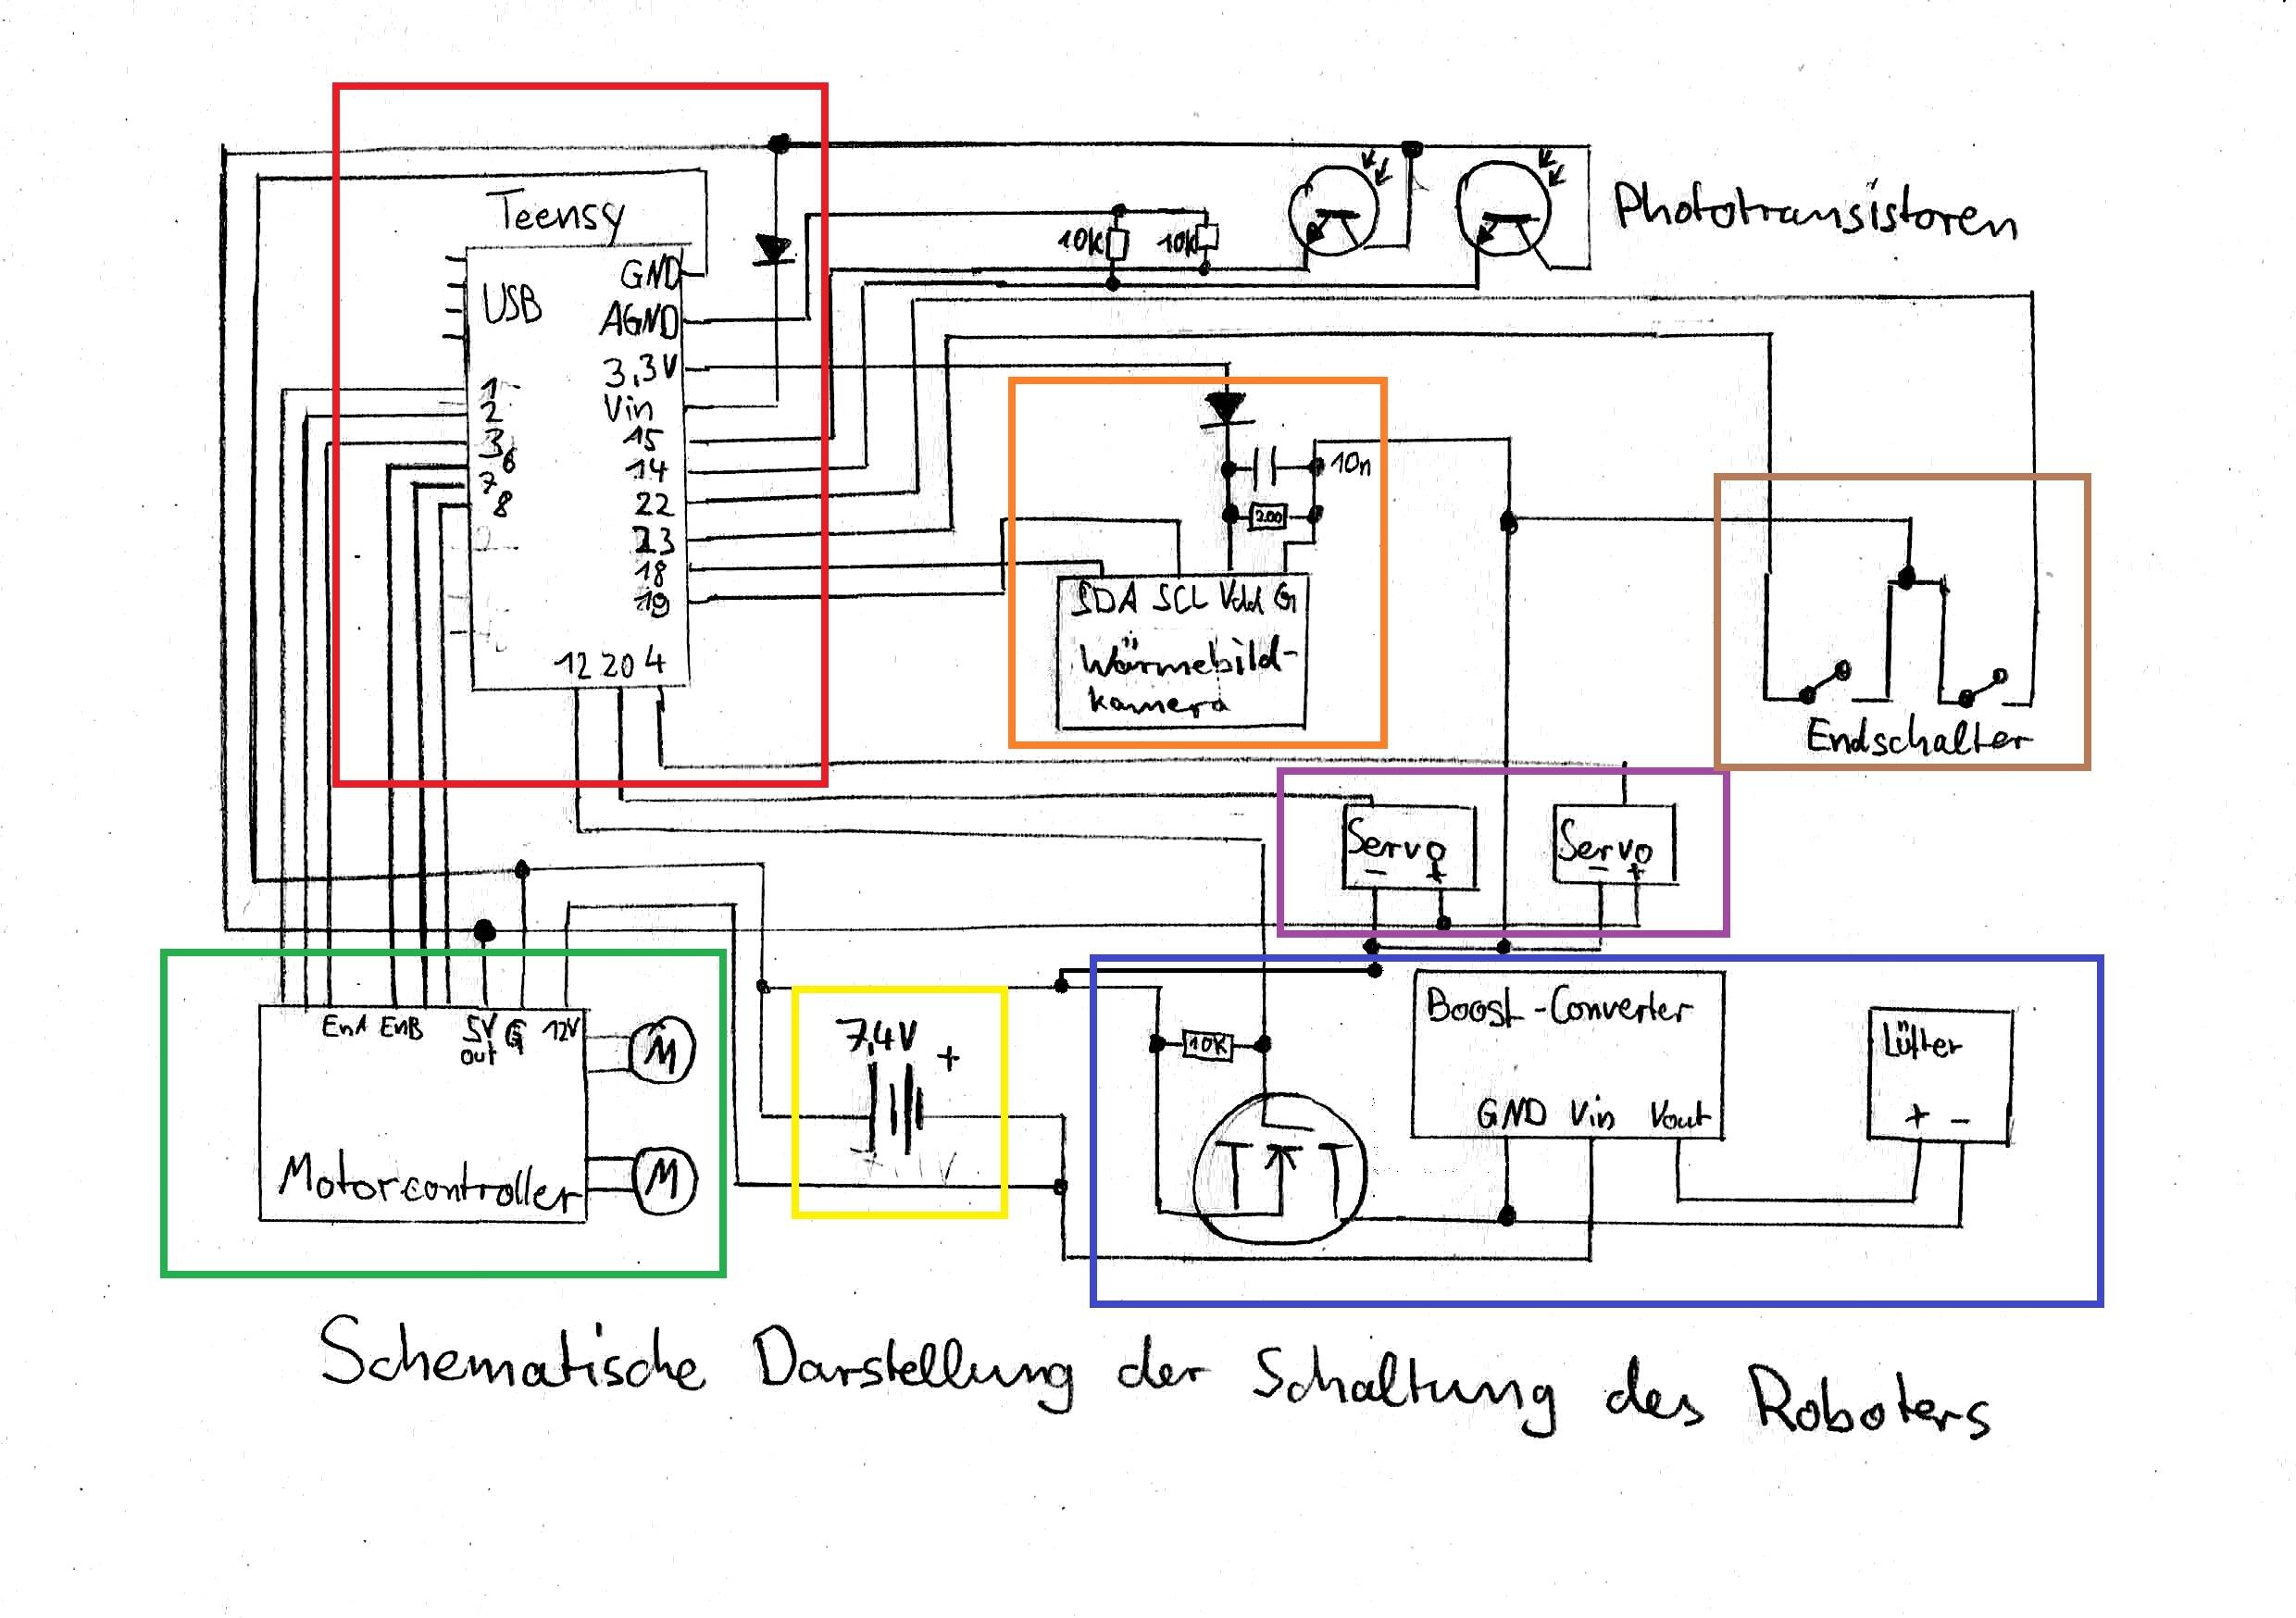 Teensy
Phototransistoren
10K 10K
USB
GND
AGND
3,3V
Vin
15
14
22
23
18
19
1
2
3
6
7
8
12 20 4
10n
200
SDA SCL Vdd G
Wärmebild-
kamera
Endschalter
Servo
- +
Servo
- +
EnA EnB 5V out G 12V
M
M
Motorcontroller
7,4V
+
10K
Boost-Converter
GND Vin Vout
Lüfter
+ -
Schematische Darstellung der Schaltung des Roboters